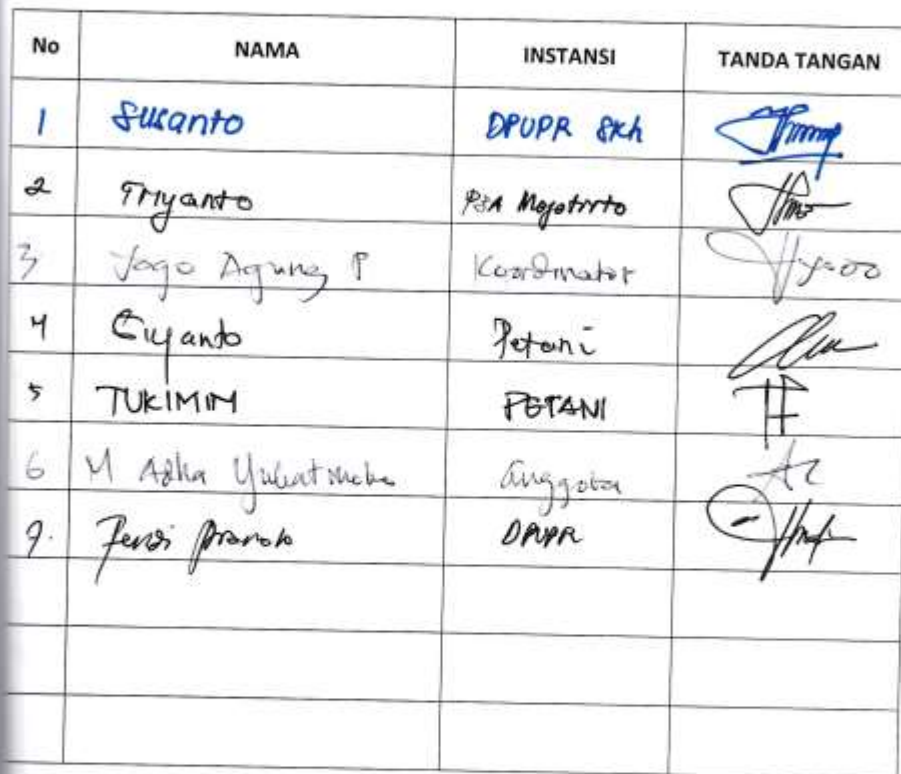 No NAMA INSTANSI TANDA TANGAN
1 Susanto DPUPR Skh
2 Triyanto P3A Mojotirto
3 Jogo Agung P Koordinator
4 Giyanto Petani
5 TUKIMIN PETANI
6 M Anggota
7. Pranoto DPUPR